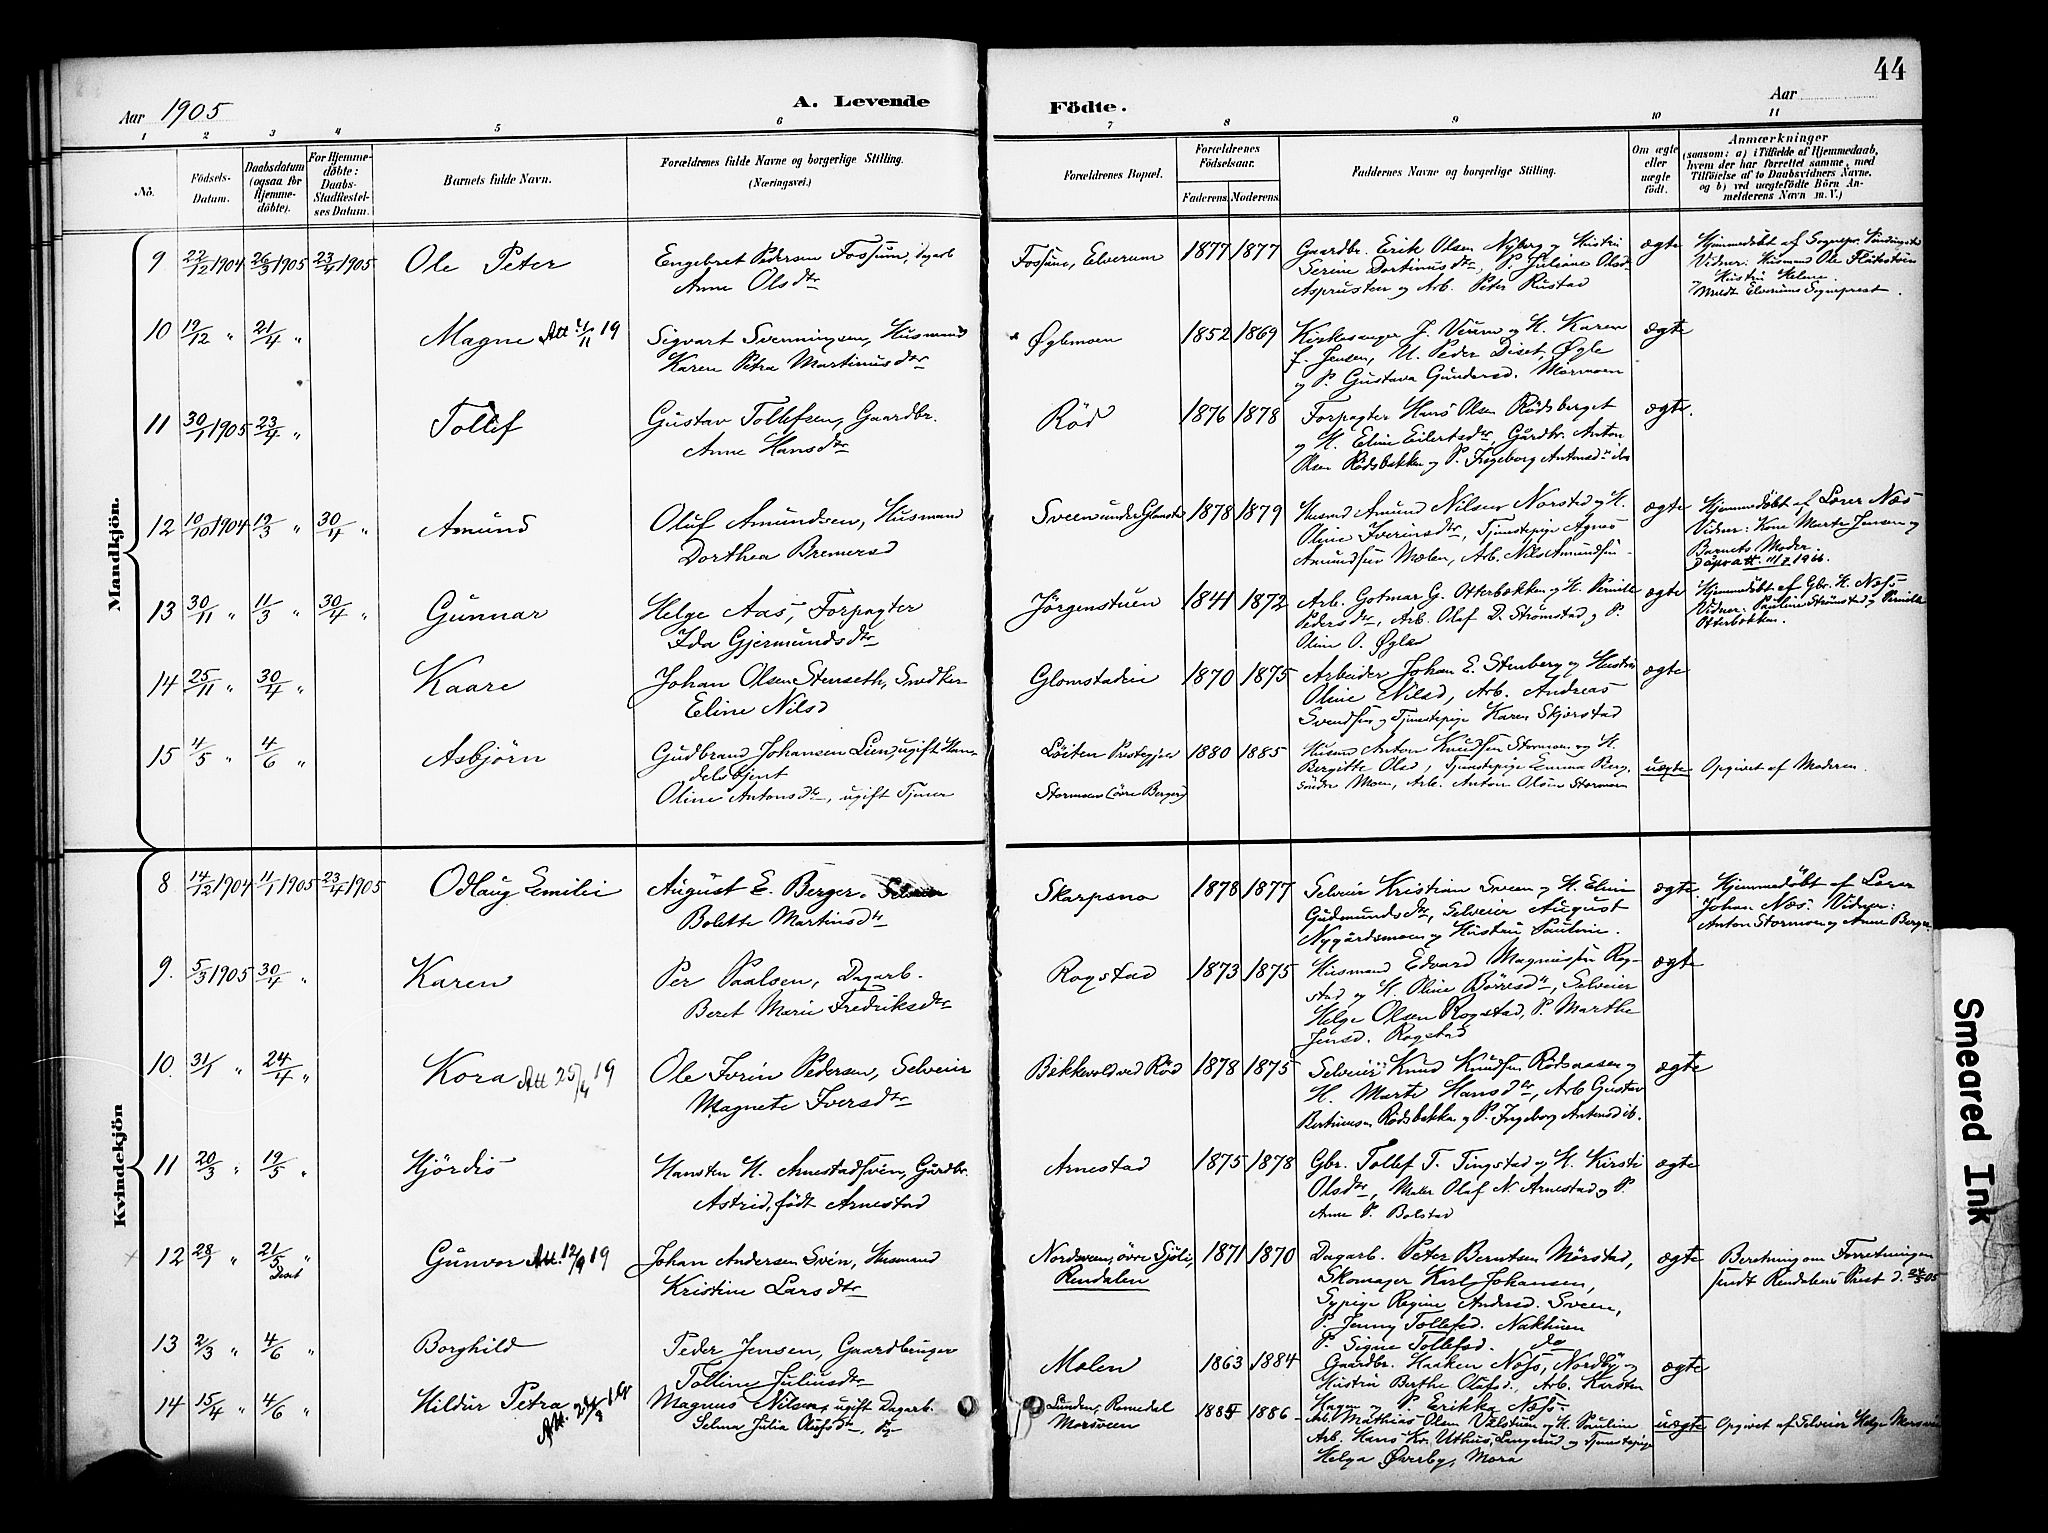 44
Aar 1905
A. Levende
Födte.
Aar
1 2 3 4 5 6 7 8 9 10 11
No.
Födsels-Datum.
Daabsdatum (ogsaa for Hjemmedöbte).
For Hjemmedöbte: Daabs-Stadfæstelses Datum.
Barnets fulde Navn.
Forældrenes fulde Navne og borgerlige Stilling.
(Næringsvei.)
Forældrenes Bopæl.
Forældrenes Födselsaar.
Faderens. Moderens.
Faddernes Navne og borgerlige Stilling.
Om ægte eller uægte födt.
Anmærkninger
(saasom: a) i Tilfælde af Hjemmedaab, hvem der har forrettet samme, med Tilföielse af to Daabsvidners Navne, og b) ved uægtefödte Börn Anmelderens Navn m. V.)
Mandkjön.
9 22/12 1904 26/3 1905 23/4 1905 Ole Peter Engebret Pedersen Fossum, Dagarb Fossum, Elverum 1877 1877 Gaardbr. Erik Olsen Nyberg og Hustru ægte Hjemmedöbt af Sognepr.
Anne Olsdtr Serene Dortinusdtr, P. Juliane Olsd. Vidner: Husmand Ole
Asprusten og Arb. Peter Rustad Hustru Helene.
Meldt Elverums Sogneprest.
10 19/12 " 21/4 " Magne Att 4/11 19 Sigvart Svenningsen, Husmand Øglemoen 1852 1869 Kirkesanger J. Virum og H. Karen ægte
Karen Petra Martinusdtr f. Jensen, U. Peder Diset, Øgle
og P. Gustava Gundersd. Mormoen
11 30/1 1905 23/4 " Tollef Gustav Tollefsen, Gaardbr. Röd 1876 1878 Forpagter Hans Olsen Rödsberget ægte.
Anne Hansdtr og H. Eline Eilertsdtr, Gårdbr. Anton
Olsen Rödsbakken og P. Ingeborg Antonsdtr ibs
12 10/10 1904 19/3 " 30/4 " Amund Oluf Amundsen, Husmand Sveen under Glomstad 1878 1879 Husmd Amund Nilsen Norstad og H. ægte Hjemmedöbt af Lærer Næs
Dorthea Bremersd Oline Iverinsdtr, Tjenestepige Agnes Vidner: Kone Marte Jensen og
Amundsen Mælen, Arb. Nils Amundsen Barnets Moder.
Dåpsatt. 11/2 1966.
13 30/11 " 11/3 " 30/4 " Gunnar Helge Aas, Forpagter Jörgenstuen 1841 1872 Arb. Gotmar G. Otterbakken og H. Pernille ægte Hjemmedöbt af Gbr. H. Næss
Ida Gjermundsdtr Pedersdtr, Arb. Olaf D. Strömstad, og P. Vidner: Pauline Strömstad og Pernille
Oline O. Øglen Otterbakken.
14 25/11 " 30/4 " Kaare Johan Olsen Stenseth, Snedker Glomstadeie 1870 1875 Arbeider Johan E. Stenberg og Hustru ægte
Eline Nilsd Oline Nilsd, Arb. Andreas
Svendsen og Tjenestepige Karen Skjærstad
15 4/5 " 4/6 " Asbjörn Gudbrand Johansen Lien, ugift Han- Löiten Prestegjeld 1880 1885 Husmd Anton Knudsen Stormoen og H.
delsbjent Bergitte Olsd, Tjenestepige Emma Berg. uægte Opgivet af Moderen.
Oline Antonsdtr, ugift Tjener Stormoen (övre Berger) söndre Moen, Arb. Anton Olsen Stormoen
Kvindekjön
8 14/12 1904 11/1 1905 23/4 1905 Odlaug Emilie August E. Berger, Selveier Skarpsno 1878 1877 Selveier Kristian Sveen og H. Eline ægte. Hjemmedöbt af Lærer
Bolette Martinsdtr Gudmundsdtr, Selveier August Johan Næs. Vidner:
Nygårdsmoen og Hustru Pauline. Anton Stormoen og Anne Berger
9. 5/3 1905 30/4 " Karen Per Paalsen, Dagarb. Rogstad 1873 1875 Husmand Edvard Magnussen Rog- ægte
Beret Marie Fredriksdtr stad og H. Oline Börresdtr, Selveier
Helge Olsen Rogstad, P. Marthe
Jensd. Rogstad
10. 31/1 " 24/4 " Kora Att 25/4 19 Ole Iverin Pedersen, Selveier Bekkevold ved Röd 1878 1875 Selveier Knud Knudsen Rödsaasen og ægte
Magnete Iversdtr H. Marte Hansdtr, Arb Gustav
Bertinusen Rödsbakken og P. Ingeborg Antonsd ib.
11 20/3 " 19/5 " Hjördis Hansten H. Arnestadsveen, Gårdbr. Arnestad 1875 1878 Gbr. Tollef T. Tingstad og H. Kirsti ægte
Astrid, födt Arnestad Olsdtr, Maler Olaf N. Arnestad og P.
Anne P. Bolstad
12 28/1 " 21/5 " Gunvor Att. 12/9 19 Johan Andersen Svèn, Husmand Nordsveen, övre Sjöli, 1871 1870 Dagarb. Peter Berntsen Mörstad, ægte Beretning om Forretningen
Kristine Larsdtr Rendalen Skomager Karl Johansen, sendt Rendalens Prest d. 24/5 05
Sypige Regine Andersd. Sveen,
P. Jenny Tollefsd. Nakhuen
P. Signe Tollefsd. do
13 2/3 " 4/6 " Borghild Peder Jensen, Gaardbruger Molen 1863 1884 Gaardbr. Haaken Næss, Nordby og ægte
Tolline Juliusdtr Hustru Berthe Olafsd., Arb. Karsten
Hagen og P. Erikka Næss.
14 15/4 " 4/6 " Hildur Petra Magnus Nilsen, ugift Dagarb. Lunden, Romedal 1884 1886 Arb. Mathias Olsen og H. Pauline uægte Opgivet af Selveier Helge Morsveen
Selma Julia Olufsdtr, Pge Morsveen Arb. Hans Kr. Uthus, Lengerud og Tjenestepige
Helga Øverby, Mora
Smeared Ink